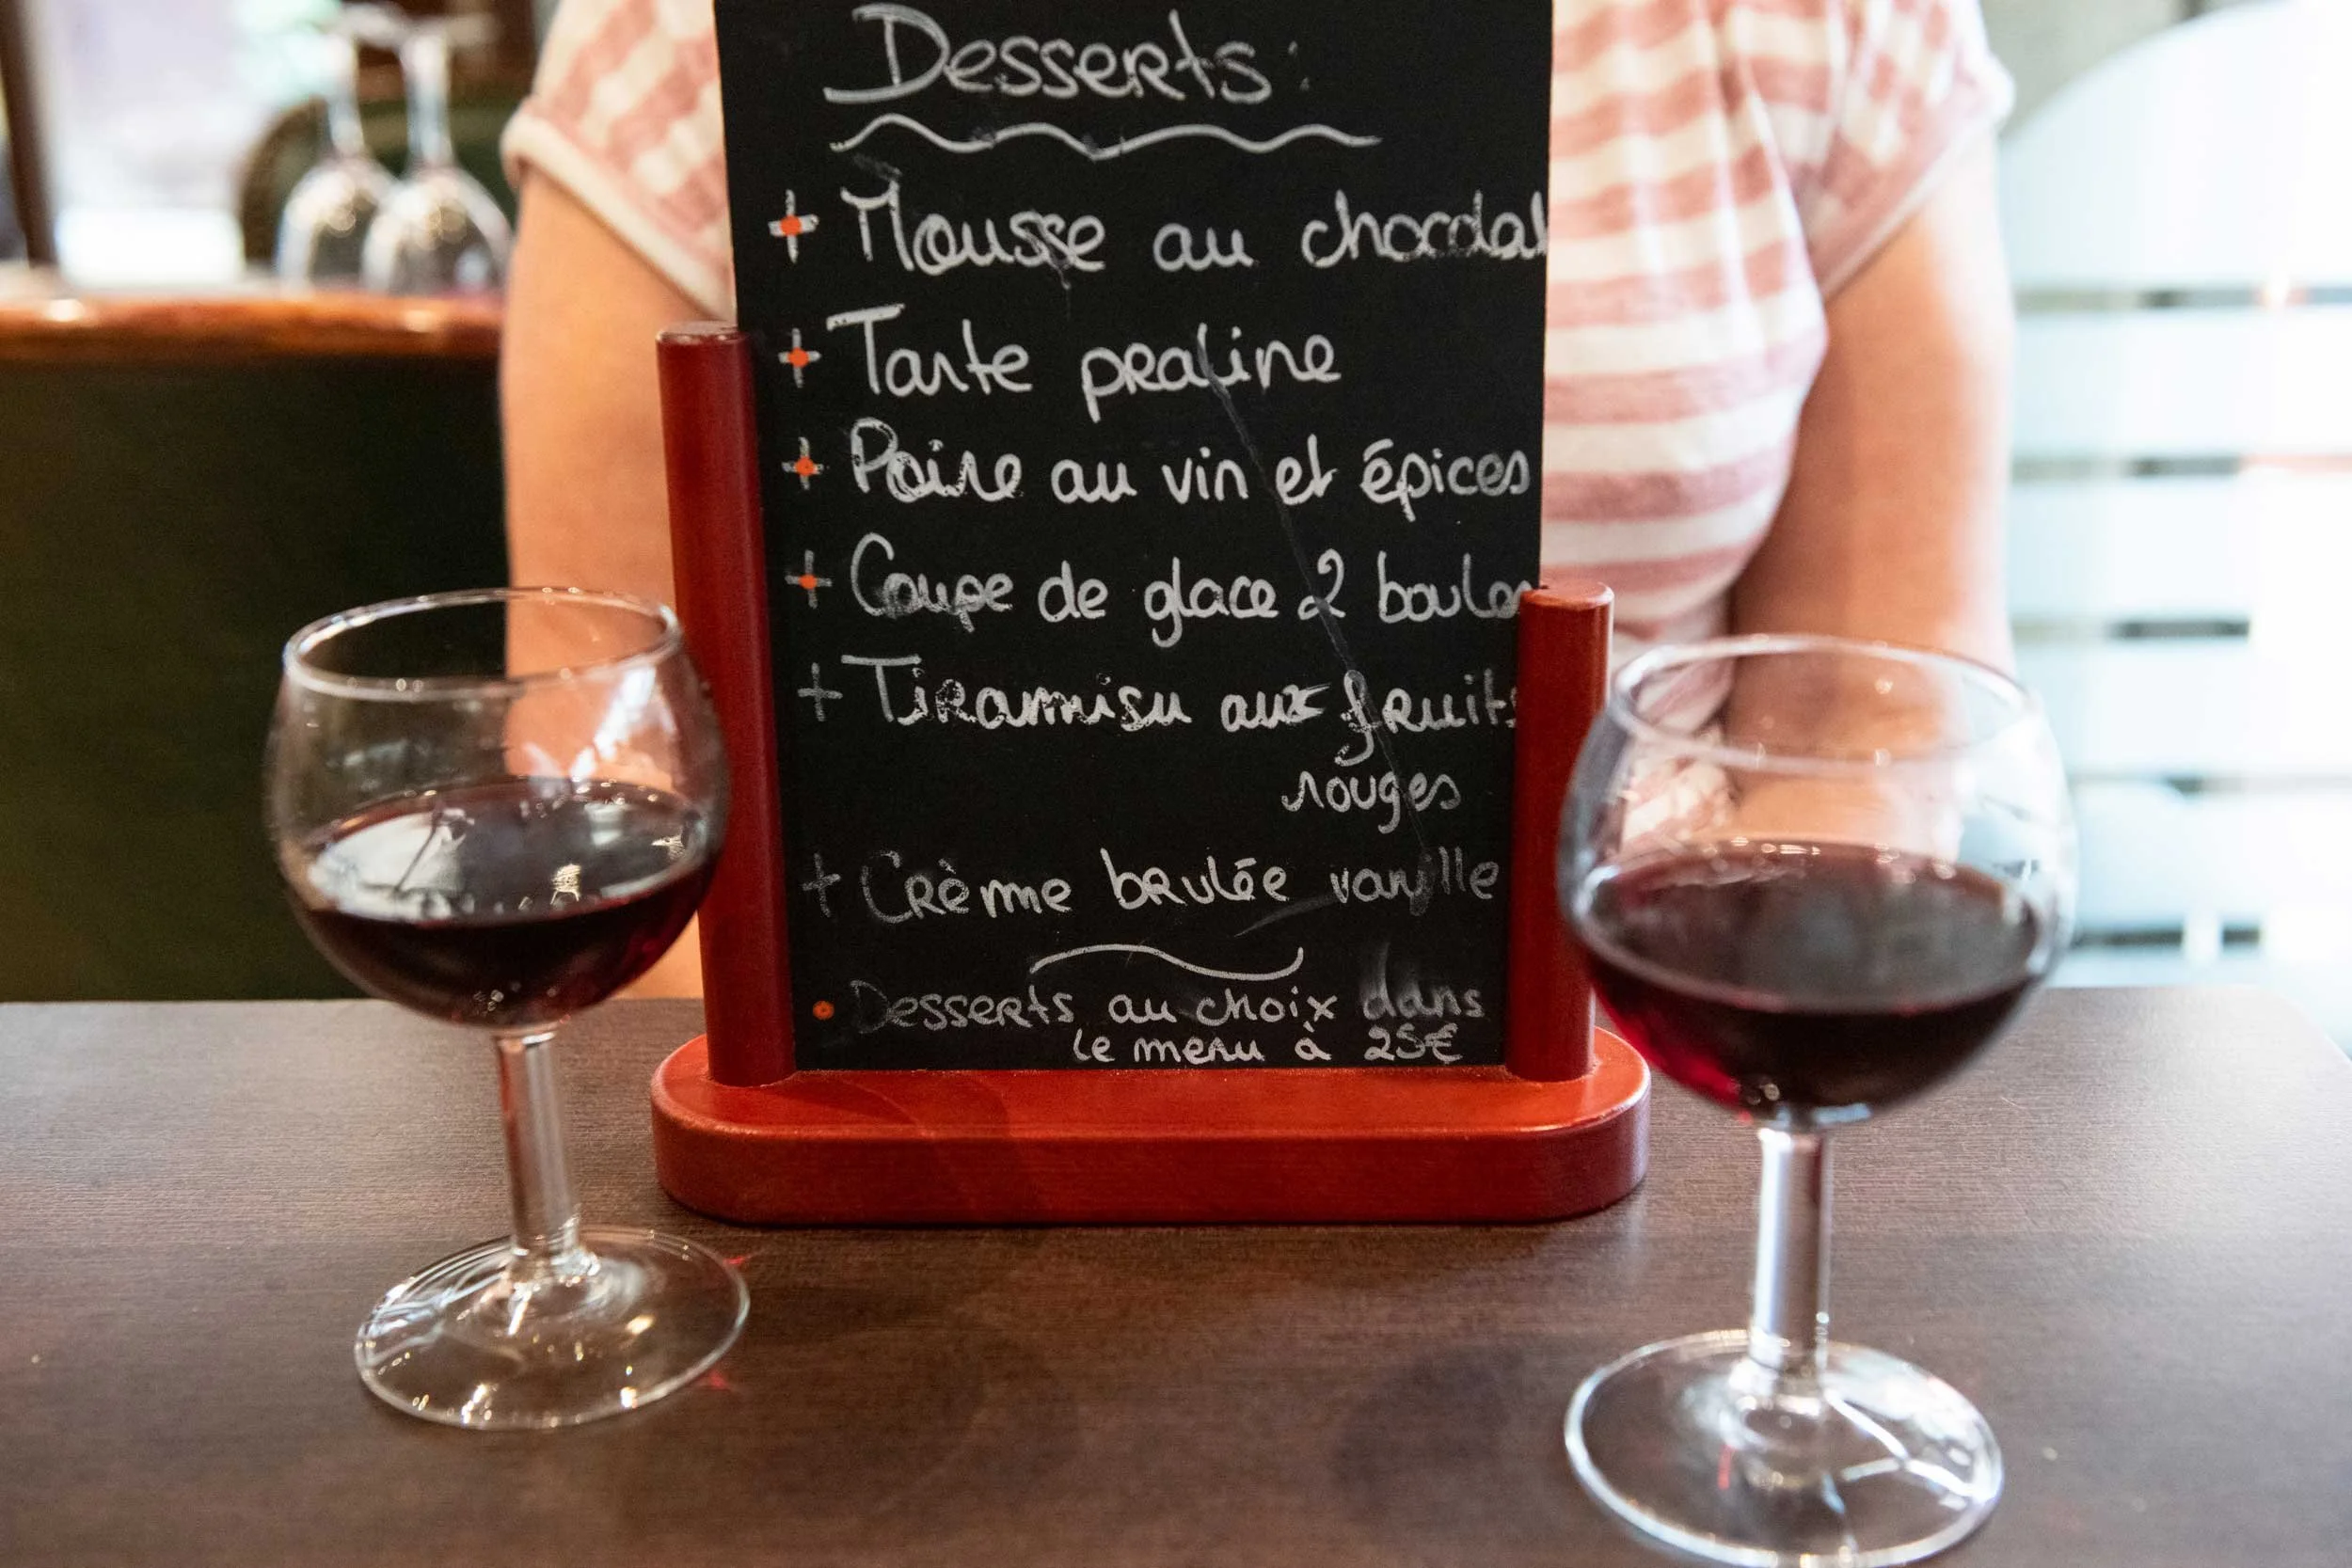 Desserts :
+ Mousse au chocolat
+ Tarte praline
+ Poire au vin et épices
+ Coupe de glace 2 boules
+ Tiramisu aux fruits
rouges
+ Crème brulée vanille
• Desserts au choix dans
le menu à 25€